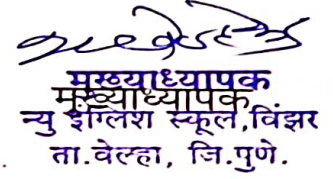 मुख्याध्यापक
मुख्याध्यापक
न्यु इंग्लिश स्कूल,विंझर
ता.वेल्हा, जि.पुणे.